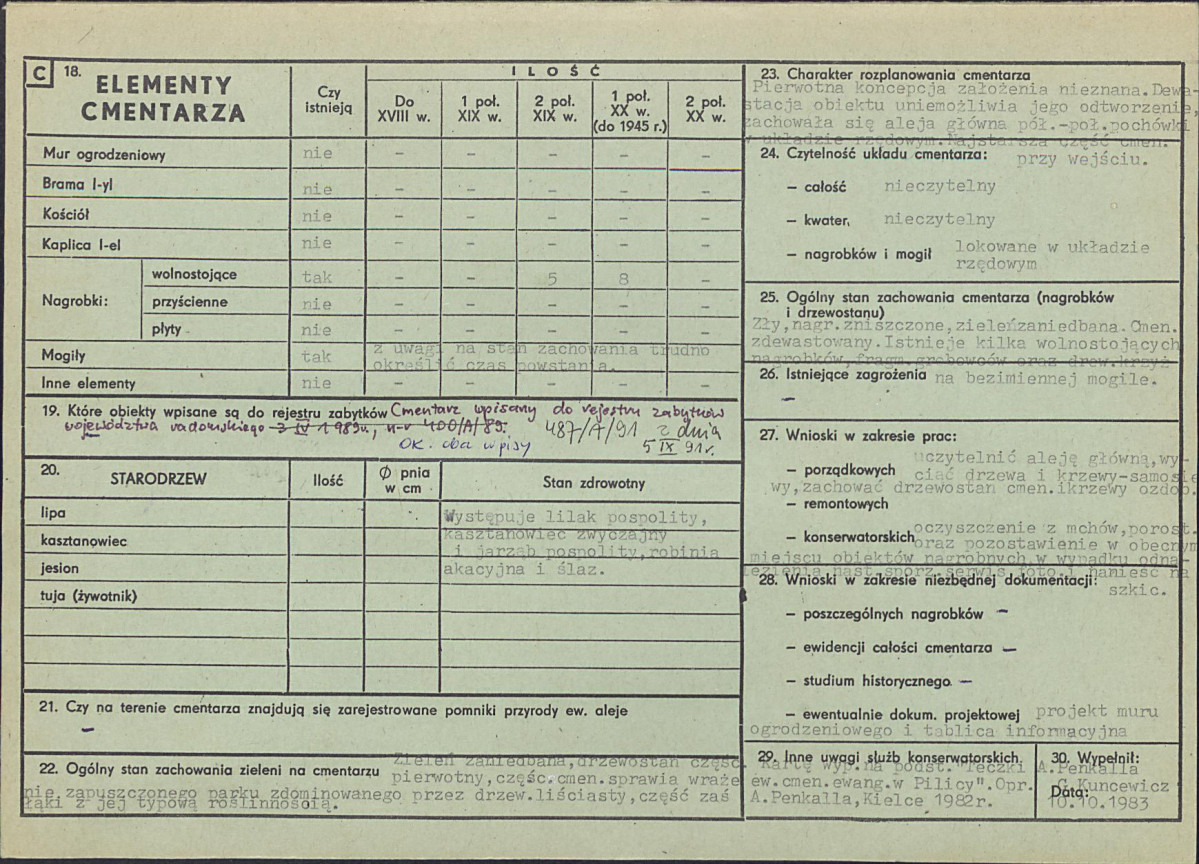 C 18. ELEMENTY CMENTARZA
Czy istnieją
ILOŚĆ
Do XVIII w.
1 poł. XIX w.
2 poł. XIX w.
1 poł. XX w. (do 1945 r.)
2 poł. XX w.
Mur ogrodzeniowy nie – – – – –
Brama I-yl nie – – – – –
Kościół nie – – – – –
Kaplica I-el nie – – – – –
Nagrobki: wolnostojące tak – – 5 8 –
przyścienne nie – – – – –
płyty nie – – – – –
Mogiły tak z uwagi na stan zachowania trudno
określić czas powstania.
Inne elementy nie – – – – –
19. Które obiekty wpisane są do rejestru zabytków Cmentarz wpisany do rejestru zabytków
województwa radomskiego 3 IV 1989r., n-r 400/A/89. 487/A/91 z dnia
OK. oba wpisy 5 IX 91r.
20. STARODRZEW
Ilość
Ø pnia w cm
Stan zdrowotny
lipa Występuje lilak pospolity,
kasztanowiec kasztanowiec zwyczajny
i jarząb pospolity,robinia
jesion akacyjna i ślaz.
tuja (żywotnik)
21. Czy na terenie cmentarza znajdują się zarejestrowane pomniki przyrody ew. aleje
–
22. Ogólny stan zachowania zieleni na cmentarzu Zieleń zaniedbana,drzewostan częśc.
pierwotny,częśc.cmen.sprawia wraże
nie zapuszczonego parku zdominowanego przez drzew.liściasty,część zaś
łąki z jej typową roślinnością.
23. Charakter rozplanowania cmentarza
Pierwotna koncepcja założenia nieznana.Dewa-
stacja obiektu uniemożliwia jego odtworzenie,
zachowała się aleja główna pół.-poł.pochówki
w układzie rzędowym.Najstarsza część cmen.
24. Czytelność układu cmentarza: przy wejściu.
– całość nieczytelny
– kwater, nieczytelny
– nagrobków i mogił lokowane w układzie
rzędowym
25. Ogólny stan zachowania cmentarza (nagrobków
i drzewostanu)
Zły,nagr.zniszczone,zieleńzaniedbana.Cmen.
zdewastowany.Istnieje kilka wolnostojących
nagrobków,fragm.grobowców oraz drew.krzyż
26. Istniejące zagrożenia na bezimiennej mogile.
–
27. Wnioski w zakresie prac:
– porządkowych uczytelnić aleję główną,wy-
ciąć drzewa i krzewy-samosie
wy,zachować drzewostan cmen.ikrzewy ozdob.
– remontowych
– konserwatorskich oczyszczenie z mchów,porost.
oraz pozostawienie w obecnym
miejscu obiektów nagrobnych w wypadku odna-
lezienia nast.sporz.serwis foto.i nanieść na
28. Wnioski w zakresie niezbędnej dokumentacji: szkic.
– poszczególnych nagrobków –
– ewidencji całości cmentarza –
– studium historycznego –
– ewentualnie dokum. projektowej projekt muru
ogrodzeniowego i tablica informacyjna
29. Inne uwagi służb konserwatorskich
Kartę wyp.na podst."Teczki
ew.cmen.ewang.w Pilicy".Opr.
A.Penkalla,Kielce 1982r.
30. Wypełnił:
A.Penkalla
C.Kuncewicz
Data:
10.10.1983